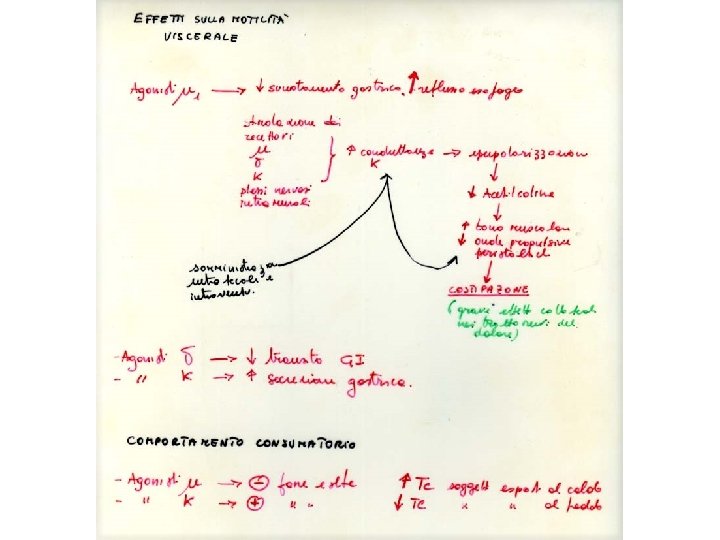 EFFETTI SULLA MOTILITÀ
VISCERALE
Agonisti μ₁ → ↓ svuotamento gastrico, ↑ reflusso esofageo
Attivazione dei
recettori
μ
δ
K
plessi nervosi
intramurali
↑ conduttanza → iperpolarizzazione
K
↓ Acetilcolina
↑ tono muscolare
↓ onde propulsive
peristaltiche
somministraz.
intratecali e
intraventr.
COSTIPAZONE
(gravi effetti collaterali
nei trattamenti del
dolore)
- Agonisti δ → ↓ transito GI
- " K → ↑ secrezione gastrica.
COMPORTAMENTO CONSUMATORIO
- Agonisti μ → ⊖ fame e sete ↑ Tc soggetti esposti al caldo
- " K → ⊕ " " ↓ Tc " " al freddo